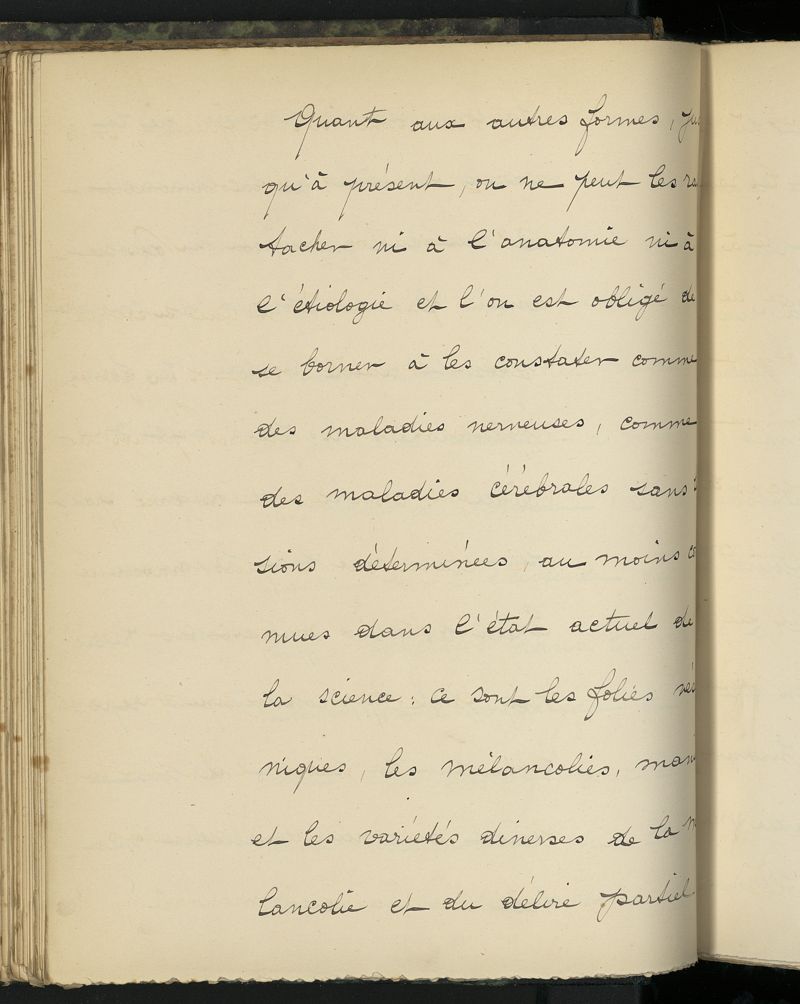 Quant aux autres formes, jus
qu'à présent, on ne peut les ra
tacher ni à l'anatomie ni à
l'étiologie et l'on est obligé de
se borner à les constater comme
des maladies nerveuses, comme
des maladies cérébrales sans
sions déterminées, au moins co
nues dans l'état actuel de
la science : ce sont les folies
niques, les mélancolies, mani
et les variétés diverses de la m
lancolie et du délire partiel